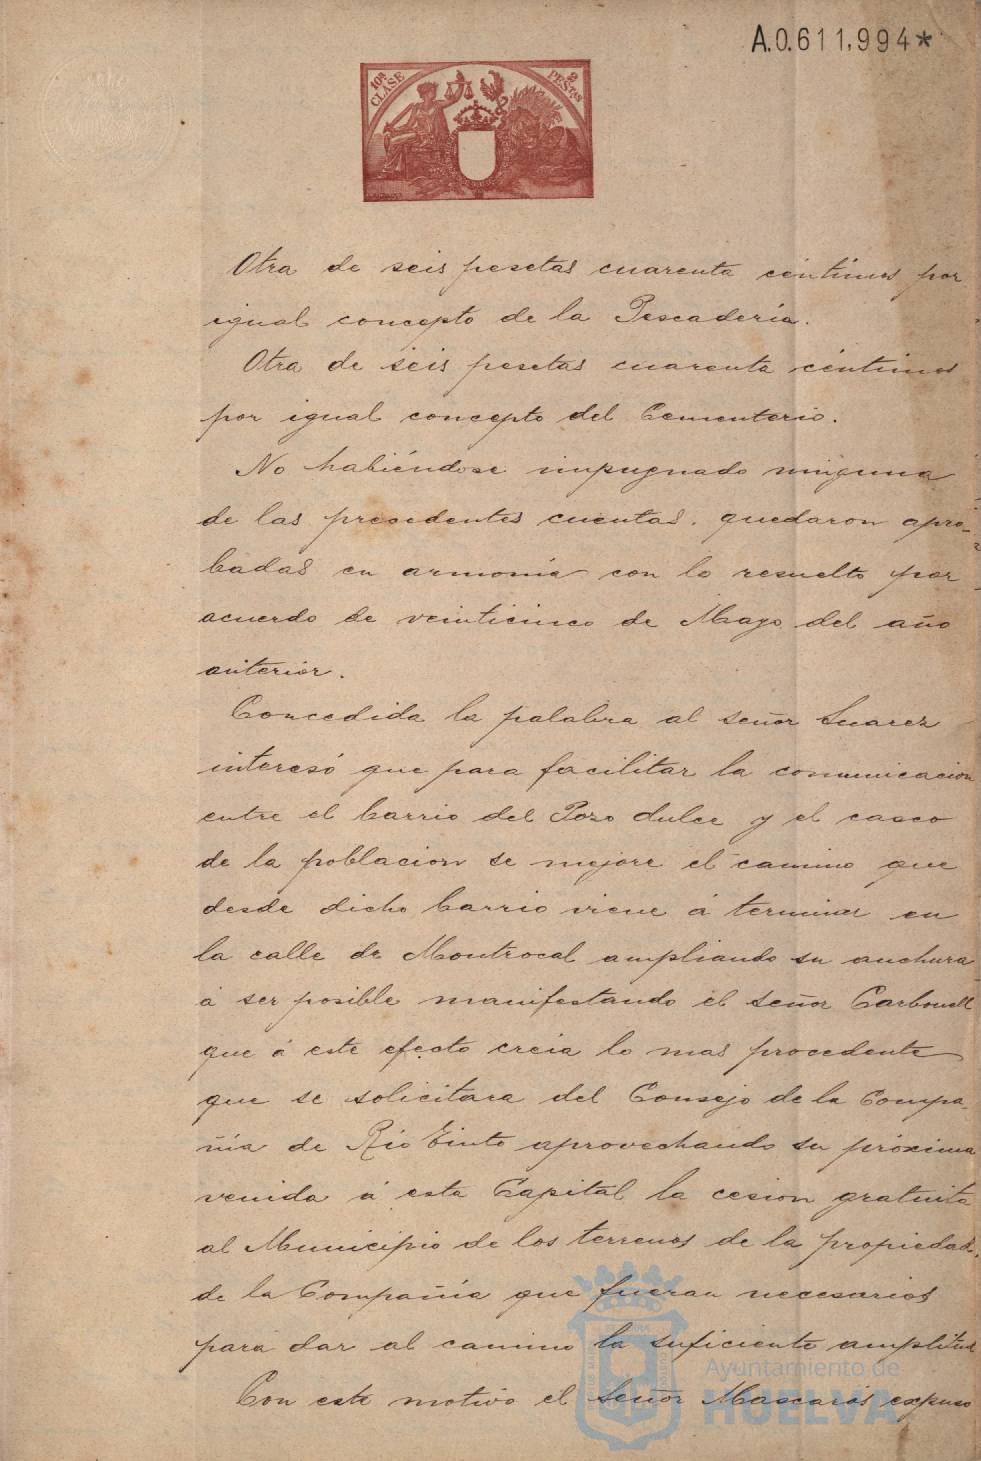 A.0.611,994*
10ª CLASE
2 PESTAS
Otra de seis pesetas cuarenta céntimos por
igual concepto de la Pescadería.
Otra de seis pesetas cuarenta céntimos
por igual concepto del Cementerio.
No habiéndose impugnado ninguna
de las precedentes cuentas, quedaron apro-
badas en armonía con lo resuelto por
acuerdo de veinticinco de Mayo del año
anterior.
Concedida la palabra al señor Suarez
interesó que para facilitar la comunicacion
entre el barrio del Pozo dulce y el casco
de la poblacion se mejore el camino que
desde dicho barrio viene á terminar en
la calle de Montrocal ampliando su anchura
á ser posible manifestando el señor Carbonell
que á este efecto creia lo mas procedente
que se solicitara del Consejo de la Compa-
ñía de Rio Tinto aprovechando su próxima
venida á esta Capital la cesion gratuita
al Municipio de los terrenos de la propiedad
de la Compañía que fueran necesarios
para dar al camino la suficiente amplitud
Con este motivo el Señor Mascarós expuso
Ayuntamiento de
HUELVA